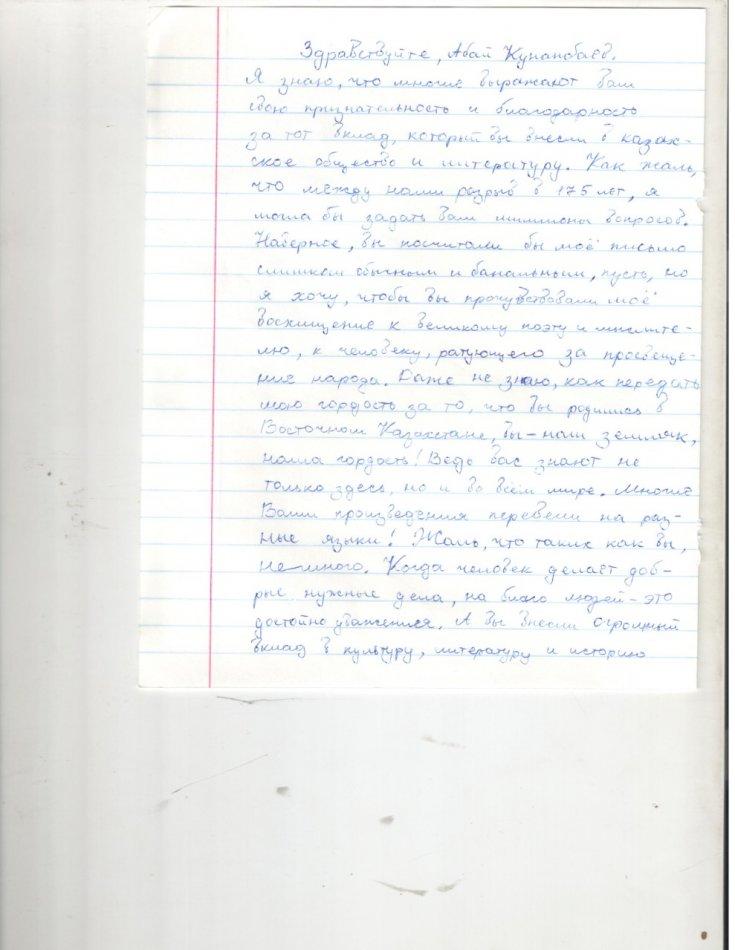 Здравствуйте, Абай Кунанбаев.
Я знаю, что многие выражают вам
свою признательность и благодарность
за тот вклад, который вы внесли в казах-
ское общество и литературу. Как жаль,
что между нами разрыв в 175 лет, я
могла бы задать вам миллионы вопросов.
Наверное, вы посчитали бы моё письмо
слишком обычным и банальным, пусть, но
я хочу, чтобы вы прочувствовали моё
восхищение к великому поэту и мыслите-
лю, к человеку, ратующего за просвеще-
ние народа. Даже не знаю, как передать
мою гордость за то, что вы родились в
Восточном Казахстане, вы - наш земляк,
наша гордость! Ведь вас знают не
только здесь, но и во всём мире. Многие
Ваши произведения перевели на раз-
ные языки! Жаль, что таких как вы,
немного. Когда человек делает доб-
рые нужные дела, на благо людей - это
достойно уважения. А вы внесли огромный
вклад в культуру, литературу и историю